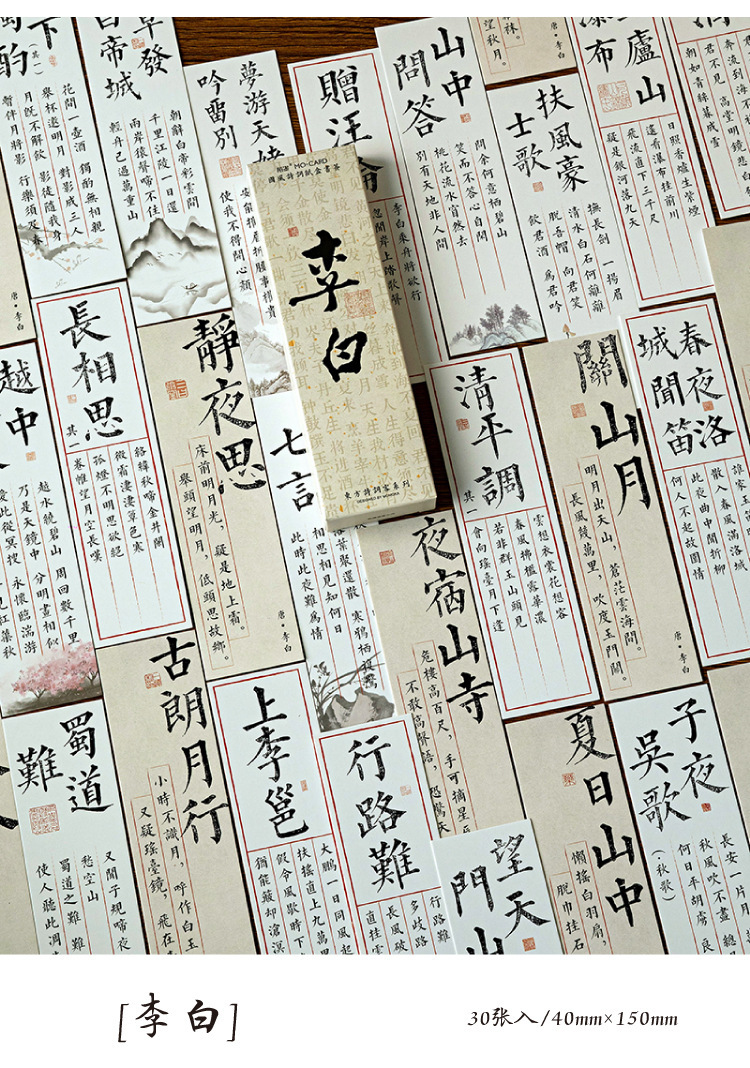 下
(其一)
花間一壺酒 獨酌無相親
舉杯邀明月 對影成三人
月既不解飲 影徒隨我身
暫伴月將影 行樂須及春
早發
白帝城
朝辭白帝彩雲間
千里江陵一日還
兩岸猿聲啼不住
輕舟已過萬重山
夢游天姥
吟留別
安能摧眉折腰事權貴
使我不得開心顏
贈汪倫
李白乘舟將欲行
忽聞岸上踏歌聲
山中
問答
問余何意栖碧山
笑而不答心自閑
桃花流水窅然去
別有天地非人間
望秋月。
扶風豪
士歌
撫長劍 一揚眉
清水白石何離離
脫吾帽 向君笑
飲君酒 爲君吟
廬山
瀑布
日照香爐生紫煙
遙看瀑布挂前川
飛流直下三千尺
疑是銀河落九天
君不見 高堂明鏡
朝如青絲暮成雪
MO·CARD
國風詩詞紙盒書簽
李白
東方詩詞雲系列
唐·李白
越中
越水鏡碧山 周回數千里
乃是天鏡中 分明畫相似
愛此從冥搜 永懷臨湍游
長相思
其一
絡緯秋啼金井闌
微霜淒淒簟色寒
孤燈不明思欲絕
卷帷望月空長嘆
靜夜思
床前明月光，疑是地上霜。
舉頭望明月，低頭思故鄉。
唐·李白
七言
相思相見知何日
此時此夜難爲情
清平調
其一
雲想衣裳花想容
春風拂檻露華濃
若非群玉山頭見
會向瑤臺月下逢
關山月
明月出天山，蒼茫雲海間。
長風幾萬里，吹度玉門關。
唐·李白
春夜洛
城聞笛
散入春風滿洛城
此夜曲中聞折柳
何人不起故園情
蜀道
難
又聞子規啼夜
愁空山
蜀道之難 難
使人聽此凋
古朗月行
小時不識月，呼作白玉
又疑瑤臺鏡，飛在
上李邕
大鵬一日同風起
扶搖直上九萬里
假令風歇時下
猶能簸却滄溟
行路難
行路難
多歧路
長風破
直挂雲
夜宿山寺
危樓高百尺，手可摘星辰
不敢高聲語，恐驚天
望天
門山
夏日山中
懶搖白羽扇，
脫巾挂石
子夜
吳歌
(·秋歌)
長安一片月
秋風吹不盡 總
何日平胡虜 良
[李白]
30张入/40mm×150mm